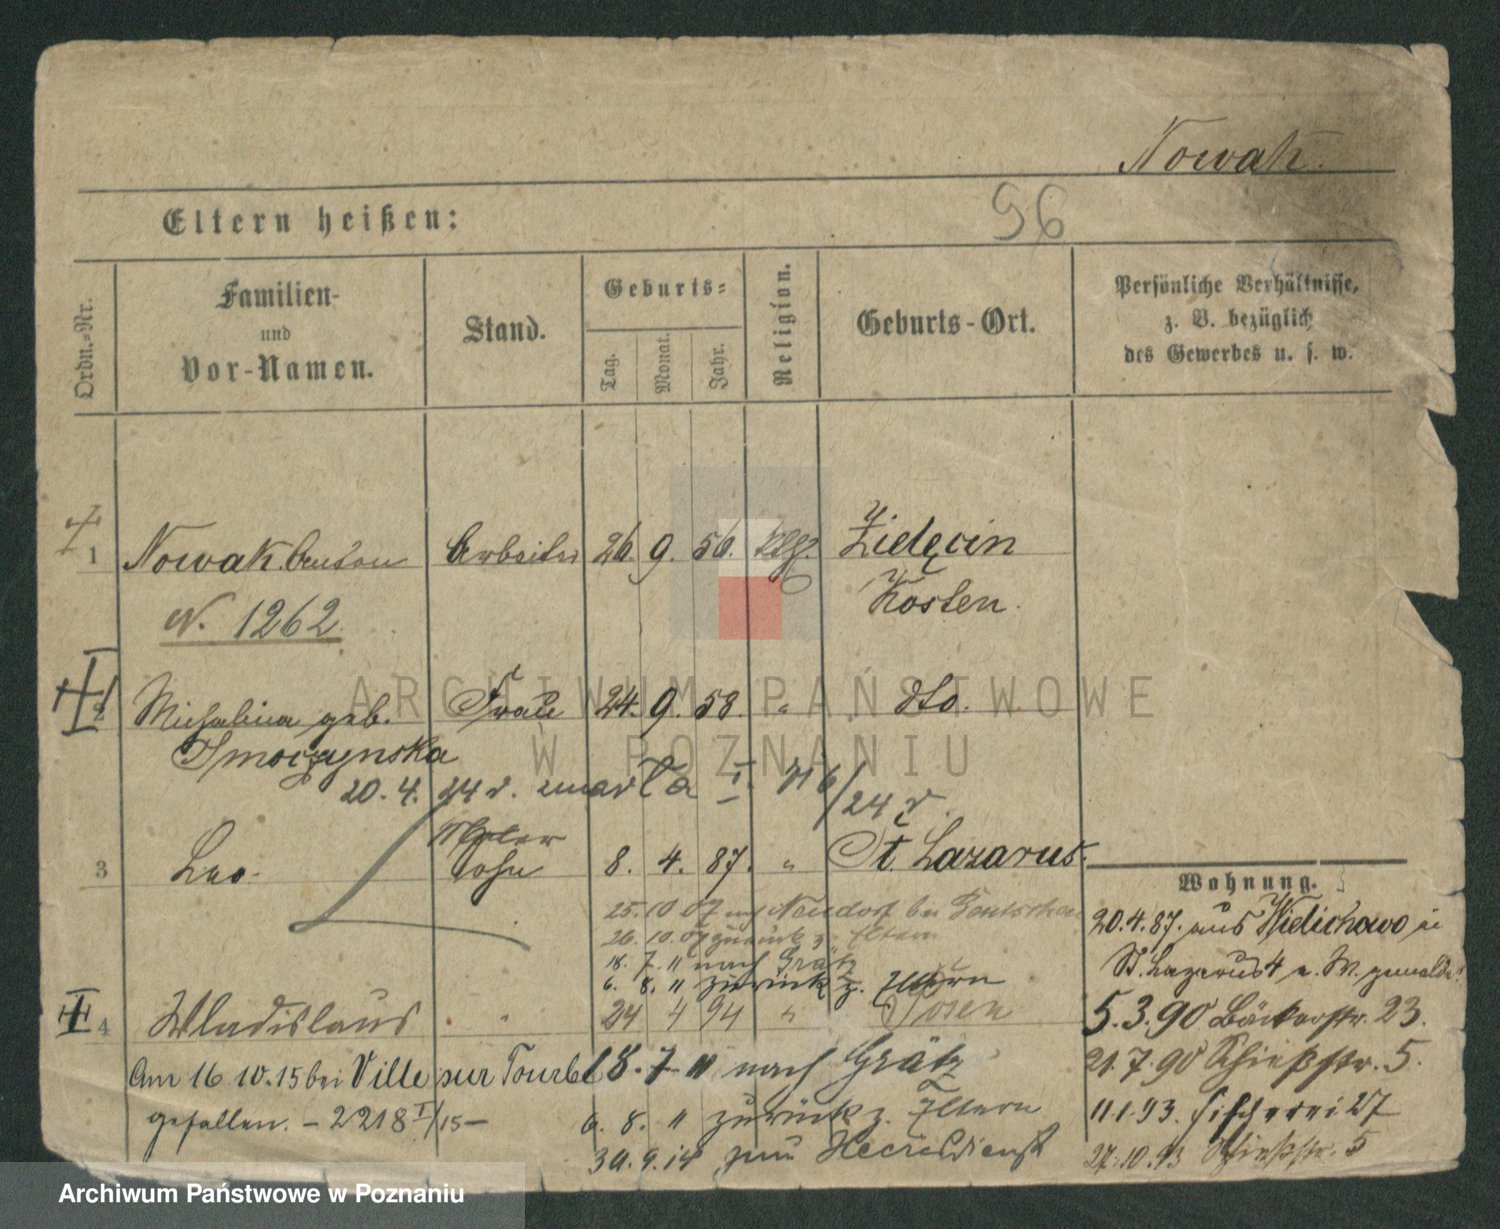 Nowak.
Eltern heißen:
96
Ordn.-Nr.
Familien-
und
Vor-Namen.
Stand.
Geburts-
Tag.
Monat.
Jahr.
Religion.
Geburts-Ort.
Persönliche Verhältnisse,
z. B. bezüglich
des Gewerbes u. s. w.
1 Nowak Anton Arbeiter 26. 9. 56. Zielęcin
Kosten.
N. 1262
2 Michalina geb. Frau 24. 9. 58. " dto.
Smoczynska
20. 4. 24 r. zmarła I. 716/24 r.
3 Leo. Sohn 8. 4. 87. " St. Lazarus.
25. 10 07 nach Neudorf bei
26. 10. 07 zurück z. Eltern
18. 7. 11 nach Grätz
6. 8. 11 zurück z. Eltern
4 Wladislaus " 24 4 94 " Posen
Am 16.10.15 bei Ville sur Tourbe
gefallen. – 2218 I/15 –
18. 7. 11 nach Grätz
6. 8. 11 zurück z. Eltern
30. 9. 14 zum Heeresdienst
Wohnung.
20.4.87. aus Widichowo in
St. Lazarus 4
5.3.90 Bäckerstr. 23.
21.7.90 Schießstr. 5.
11.1.93. Fischerei 27
27.10.93 Schießstr. 5
ARCHIWUM PAŃSTWOWE
W POZNANIU
Archiwum Państwowe w Poznaniu